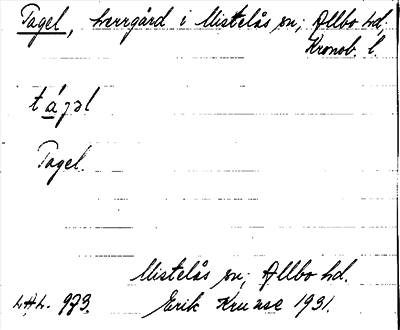 Tagel, herrgård i Mistelås sn, Allbo hd,
Kronob. l.
tágəl
Tagel.
Mistelås sn, Allbo hd.
LAL. 973. Erik Kruuse 1931.